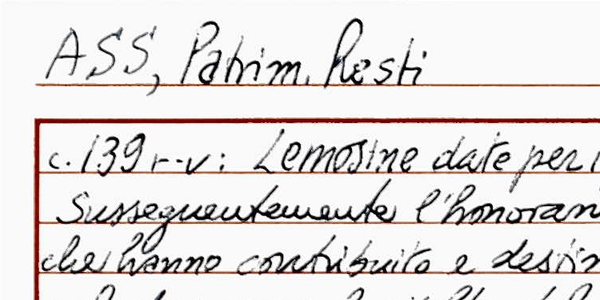 ASS, Patrim. Resti
c. 139 r-v: Lemosine date per
Susseguentemente l'honoran
che hanno contribuito e destin